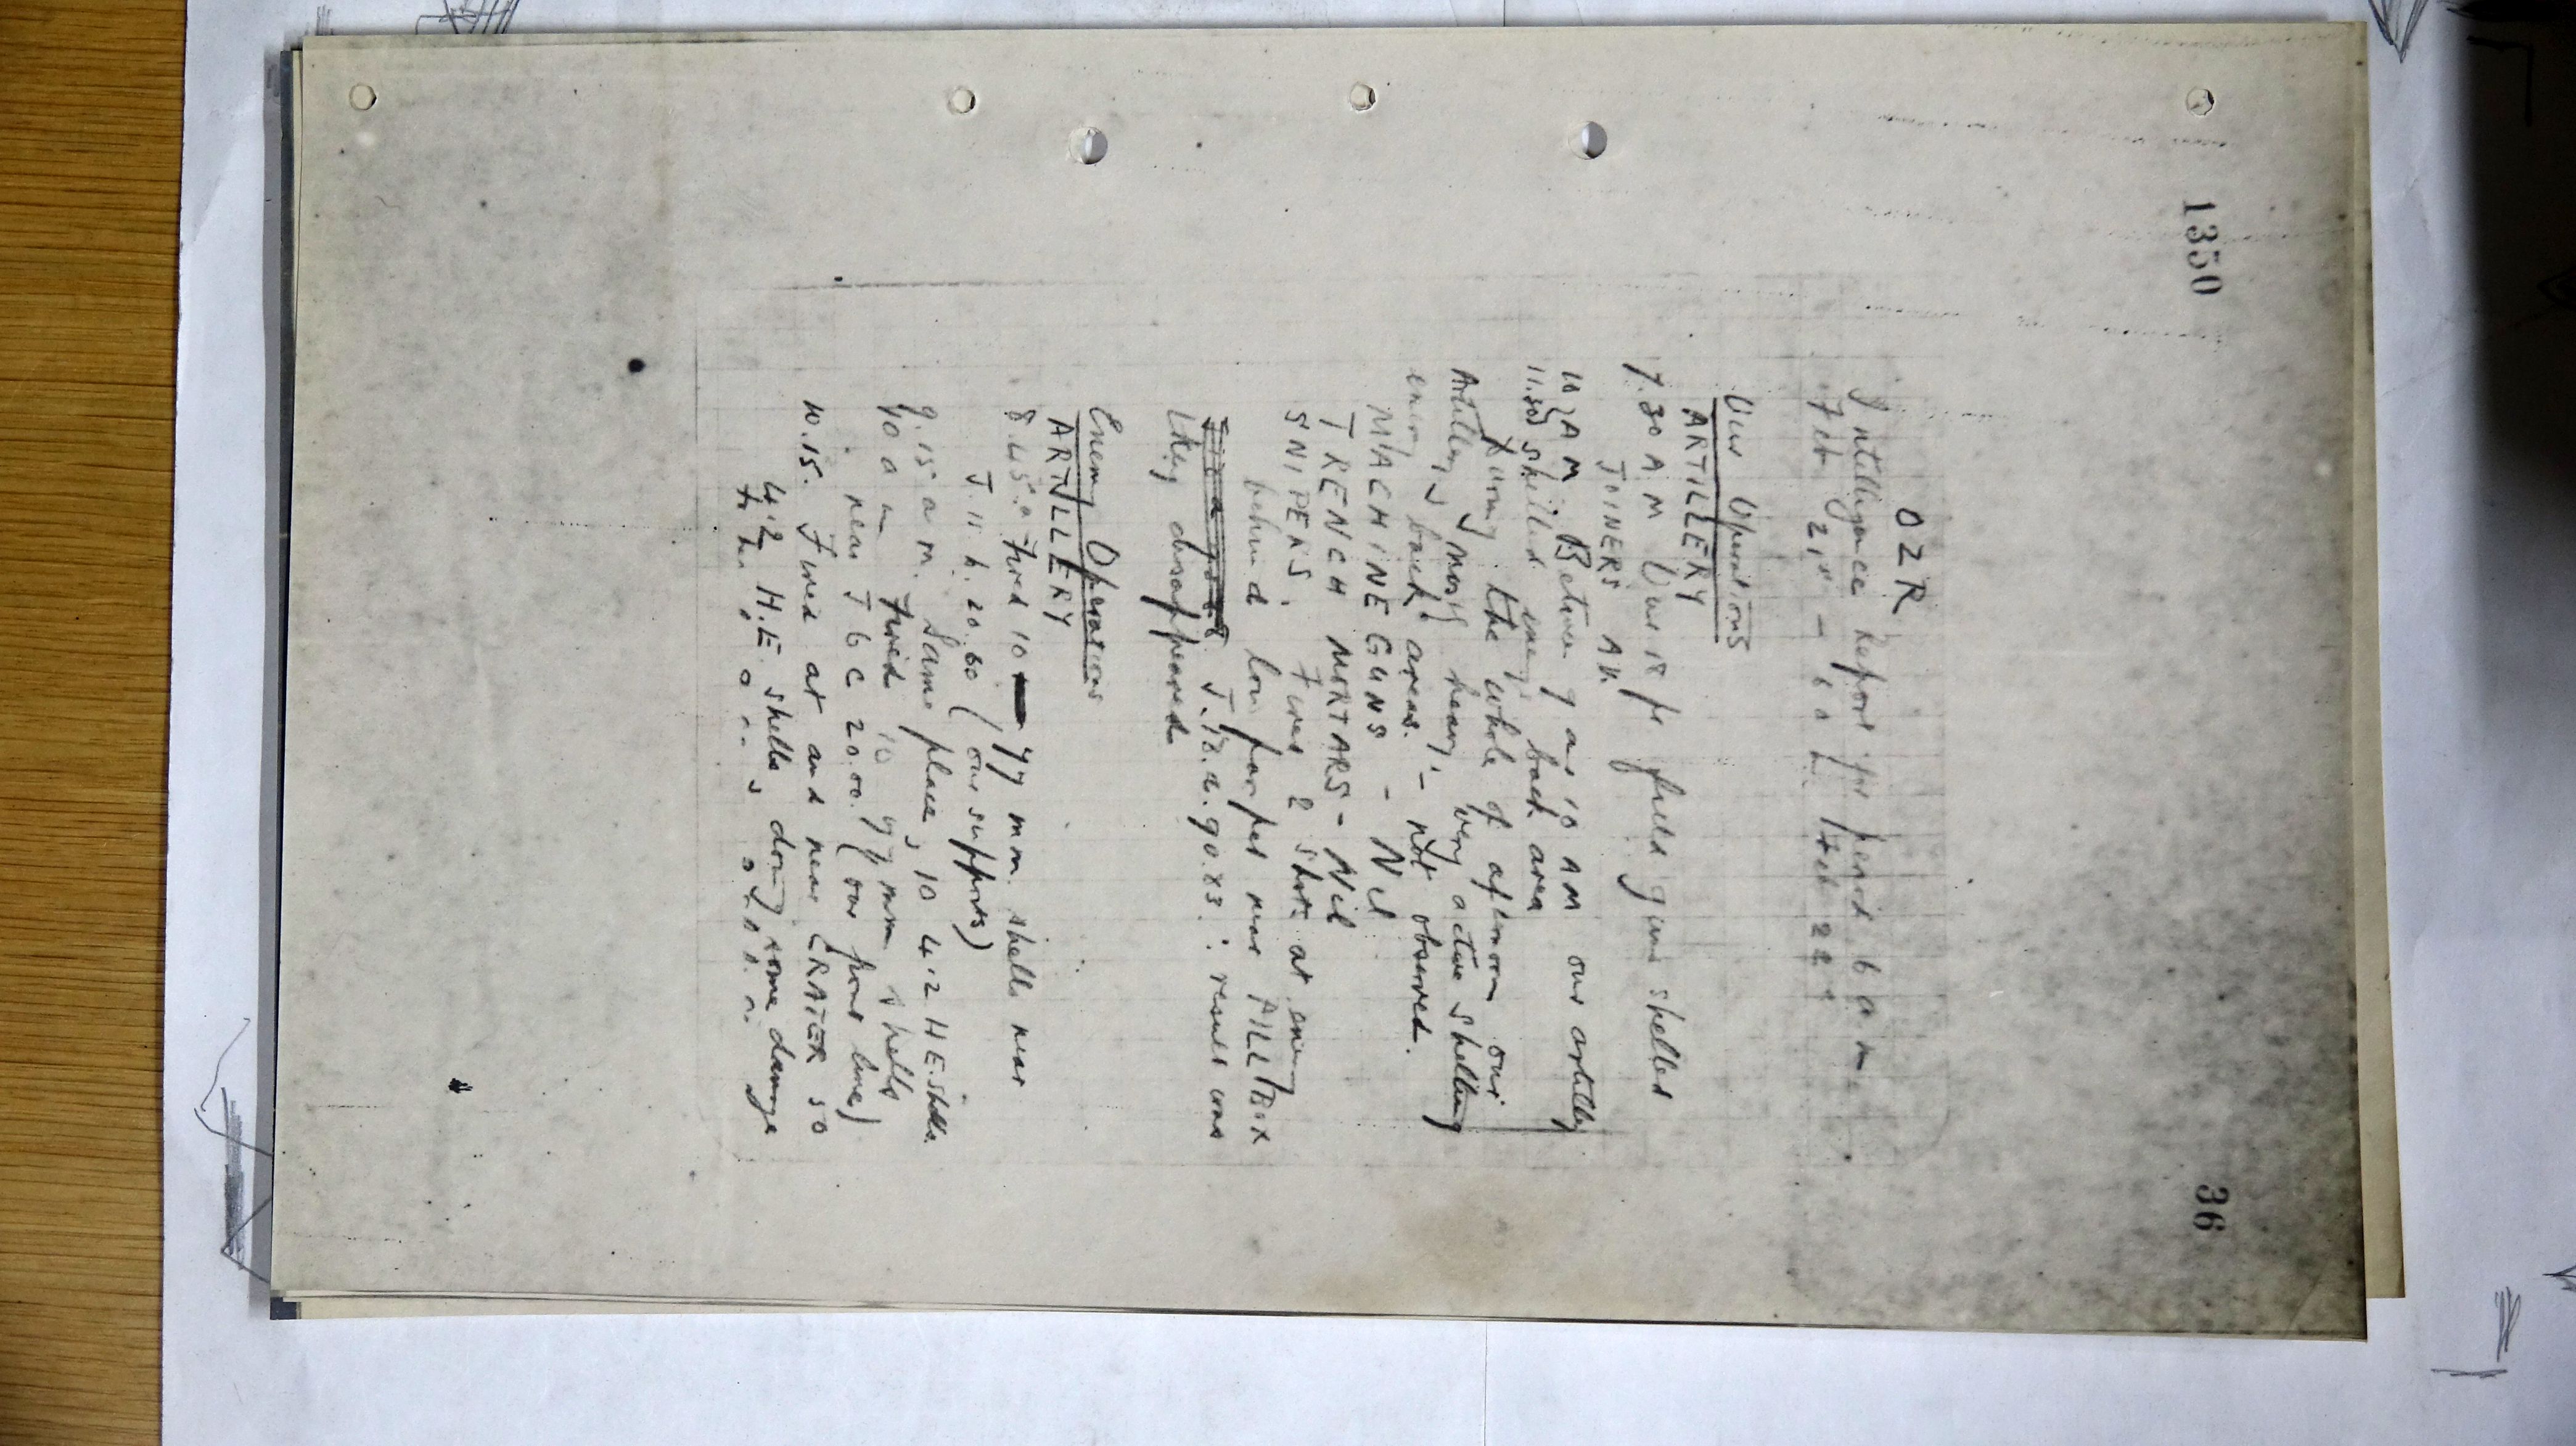 1350
36
OZR
Intelligence Report for period 6 a.m.
Feb 21st - 6 a Feb 22
Our Operations
ARTILLERY
7.30 AM Our 18 pr field guns shelled
JOINERS AV.
10 AM Between 9 and 10 AM our artillery
11.30 shelled enemy back area
During the whole of afternoon our
Artillery, heavy, very active shelling
enemy back areas. - not observed.
MACHINE GUNS - Nil
TRENCH MORTARS - Nil
SNIPERS. Fired 2 shots at enemy
behind low parpet near PILL BOX
J.18.a.90.83: result was
they disappeared
Enemy Operations
ARTILLERY
8.45 a Fired 10 77 mm. shells near
J.11 b. 20.60 (our supports)
9.15 a m. Same place, 10 4.2 H E. shells.
10 a m Fired 10 77 mm shells
near J 6 c 20.00. (our front line)
10.15. Fired at and near CRATER 50
4.2 H.E. shells, doing some damage
to